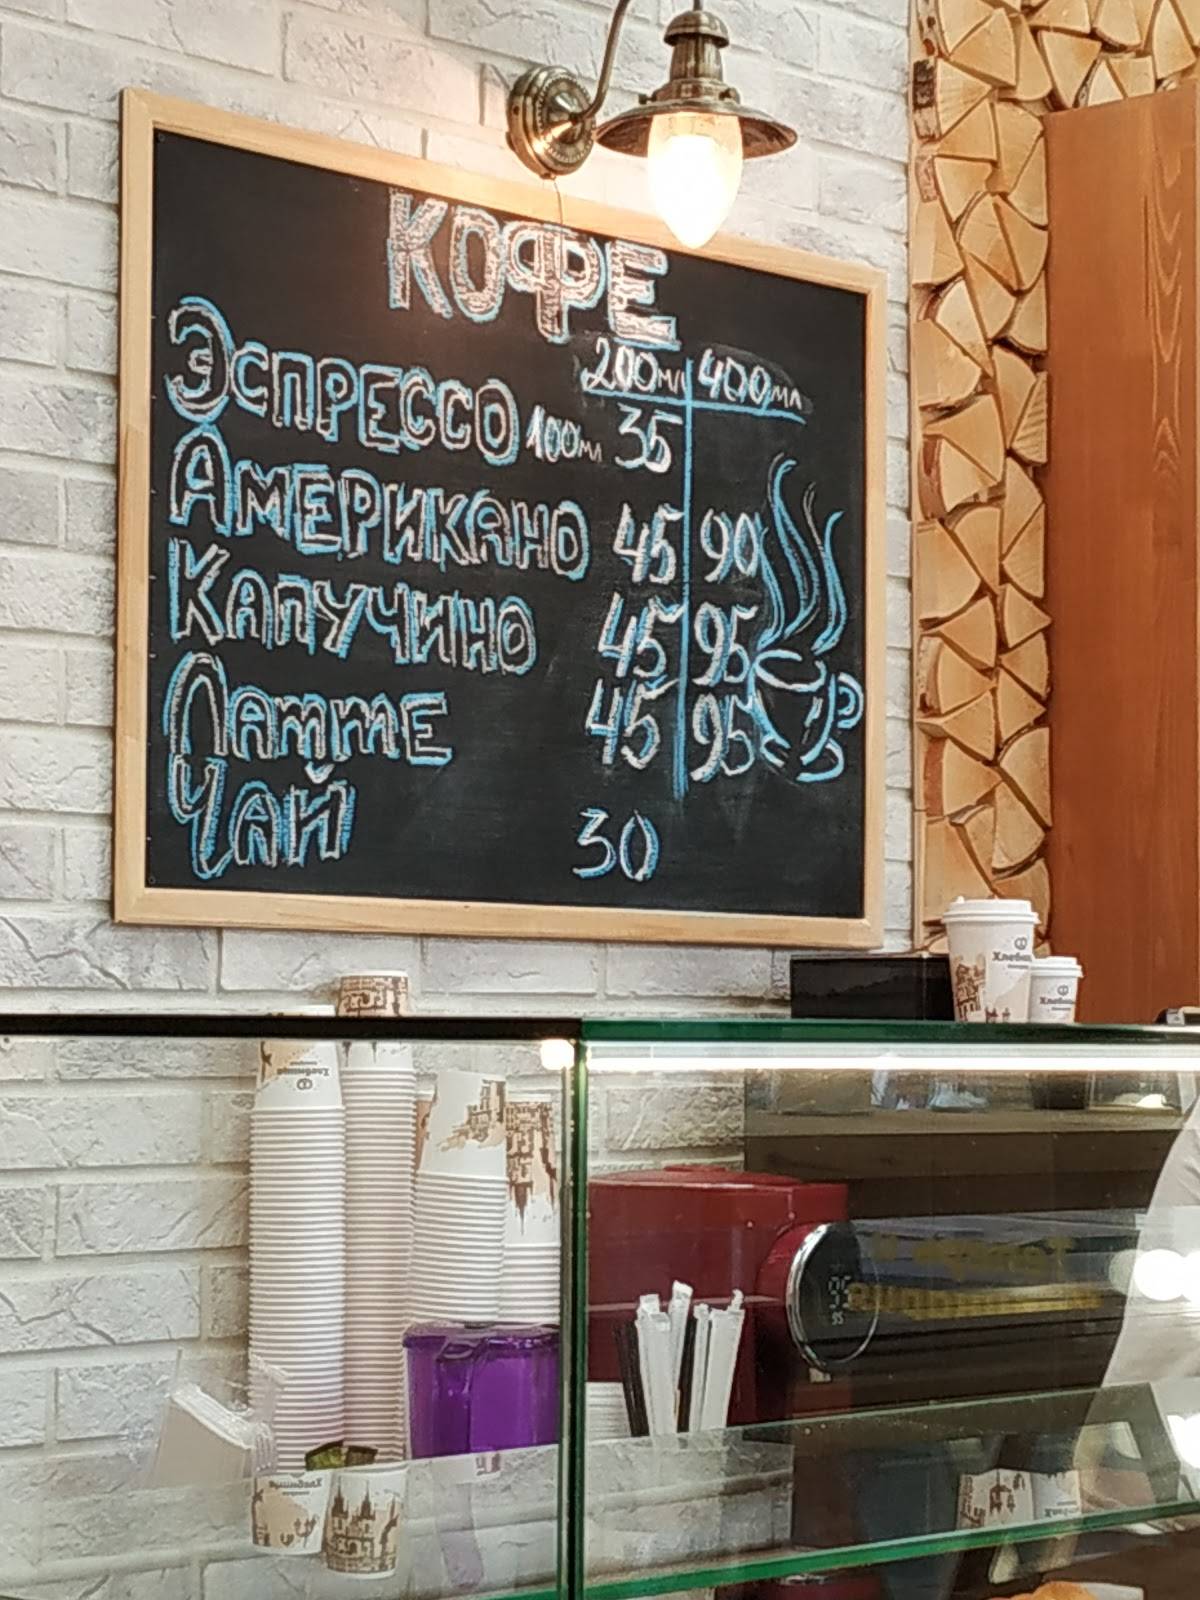 КОФЕ
200мл 400мл
Эспрессо 100мл 35
Американо 45 90
Капучино 45 95
Латте 45 95
Чай 30
Хлебница
95
95